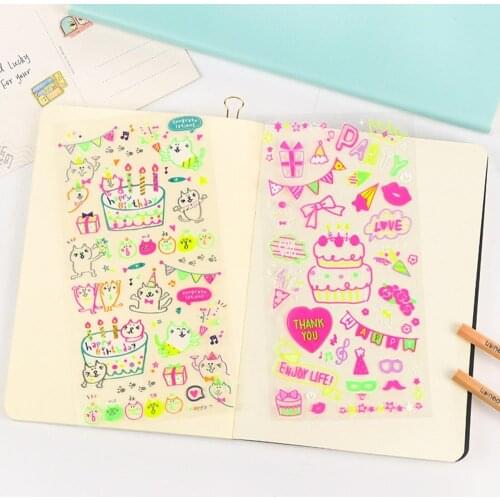 Lucky
For your
Congratu
lations!
happy
Birthday!
Congratu
lations!
happy
Birthday!
Happy
PARTY
LOVE
THANK
YOU
HAPPY
ENJOY LIFE!